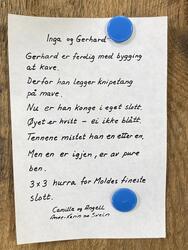 Inga og Gerhard
Gerhard er ferdig med bygging
at kave.
Derfor han legger knipetang
på mave.
Nu er han konge i eget slott.
Øyet er hvitt - ei ikke blått.
Tennene mistet han en etter en.
Men en er igjen, er av pure
ben.
3 x 3 hurra for Moldes fineste
slott.
Camilla og Angell
Anne-Karin og Svein